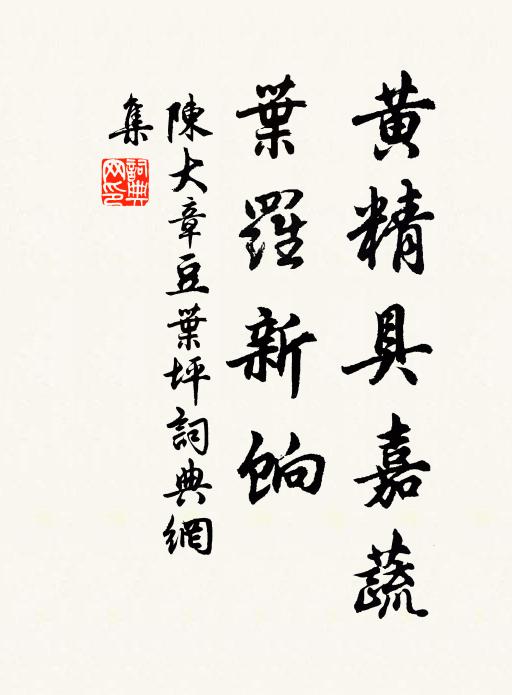 黄精具嘉蔬
葉羅新餉
陳大章豆葉坪詞典網
集
詞典
网印